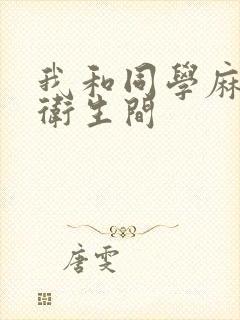 我和同學麻
衛生間
唐雯